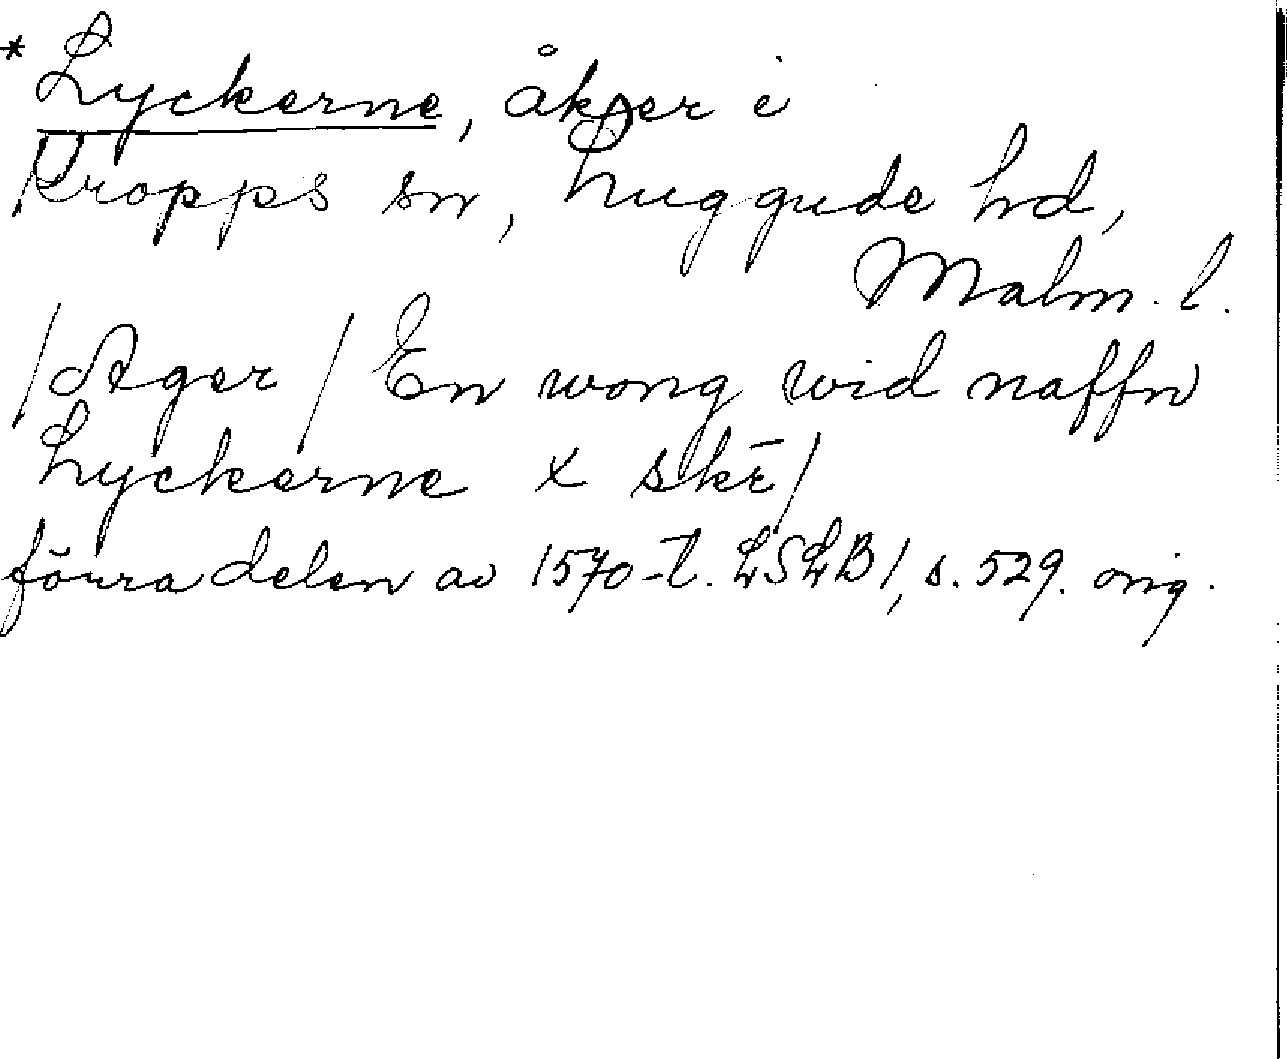 * Lyckerne, åker i
Kropps sn, Luggude hd,
Malm. l.
/Ager/ En wong wid naffn
Lyckerne x skē/
förra delen av 1570-t. LSLB1, s. 529. orig.